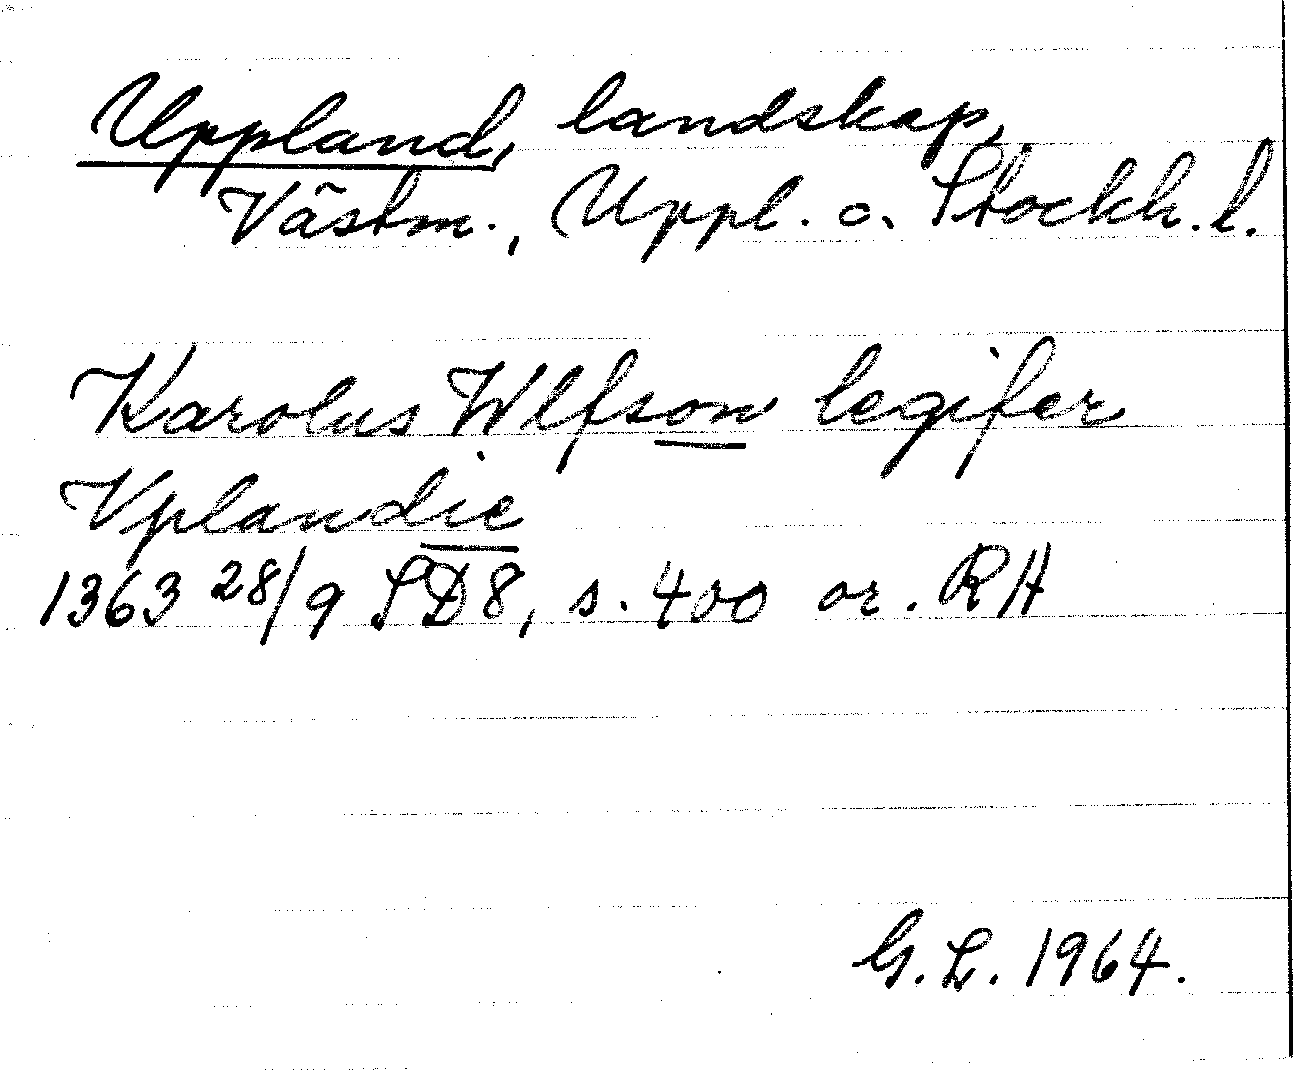 Uppland, landskap,
Västm., Uppl. o. Stockh. l.
Karolus Wlfson legifer
Vplandie
1363 28/9 SD8, s. 400 or. RH
G. L. 1964.